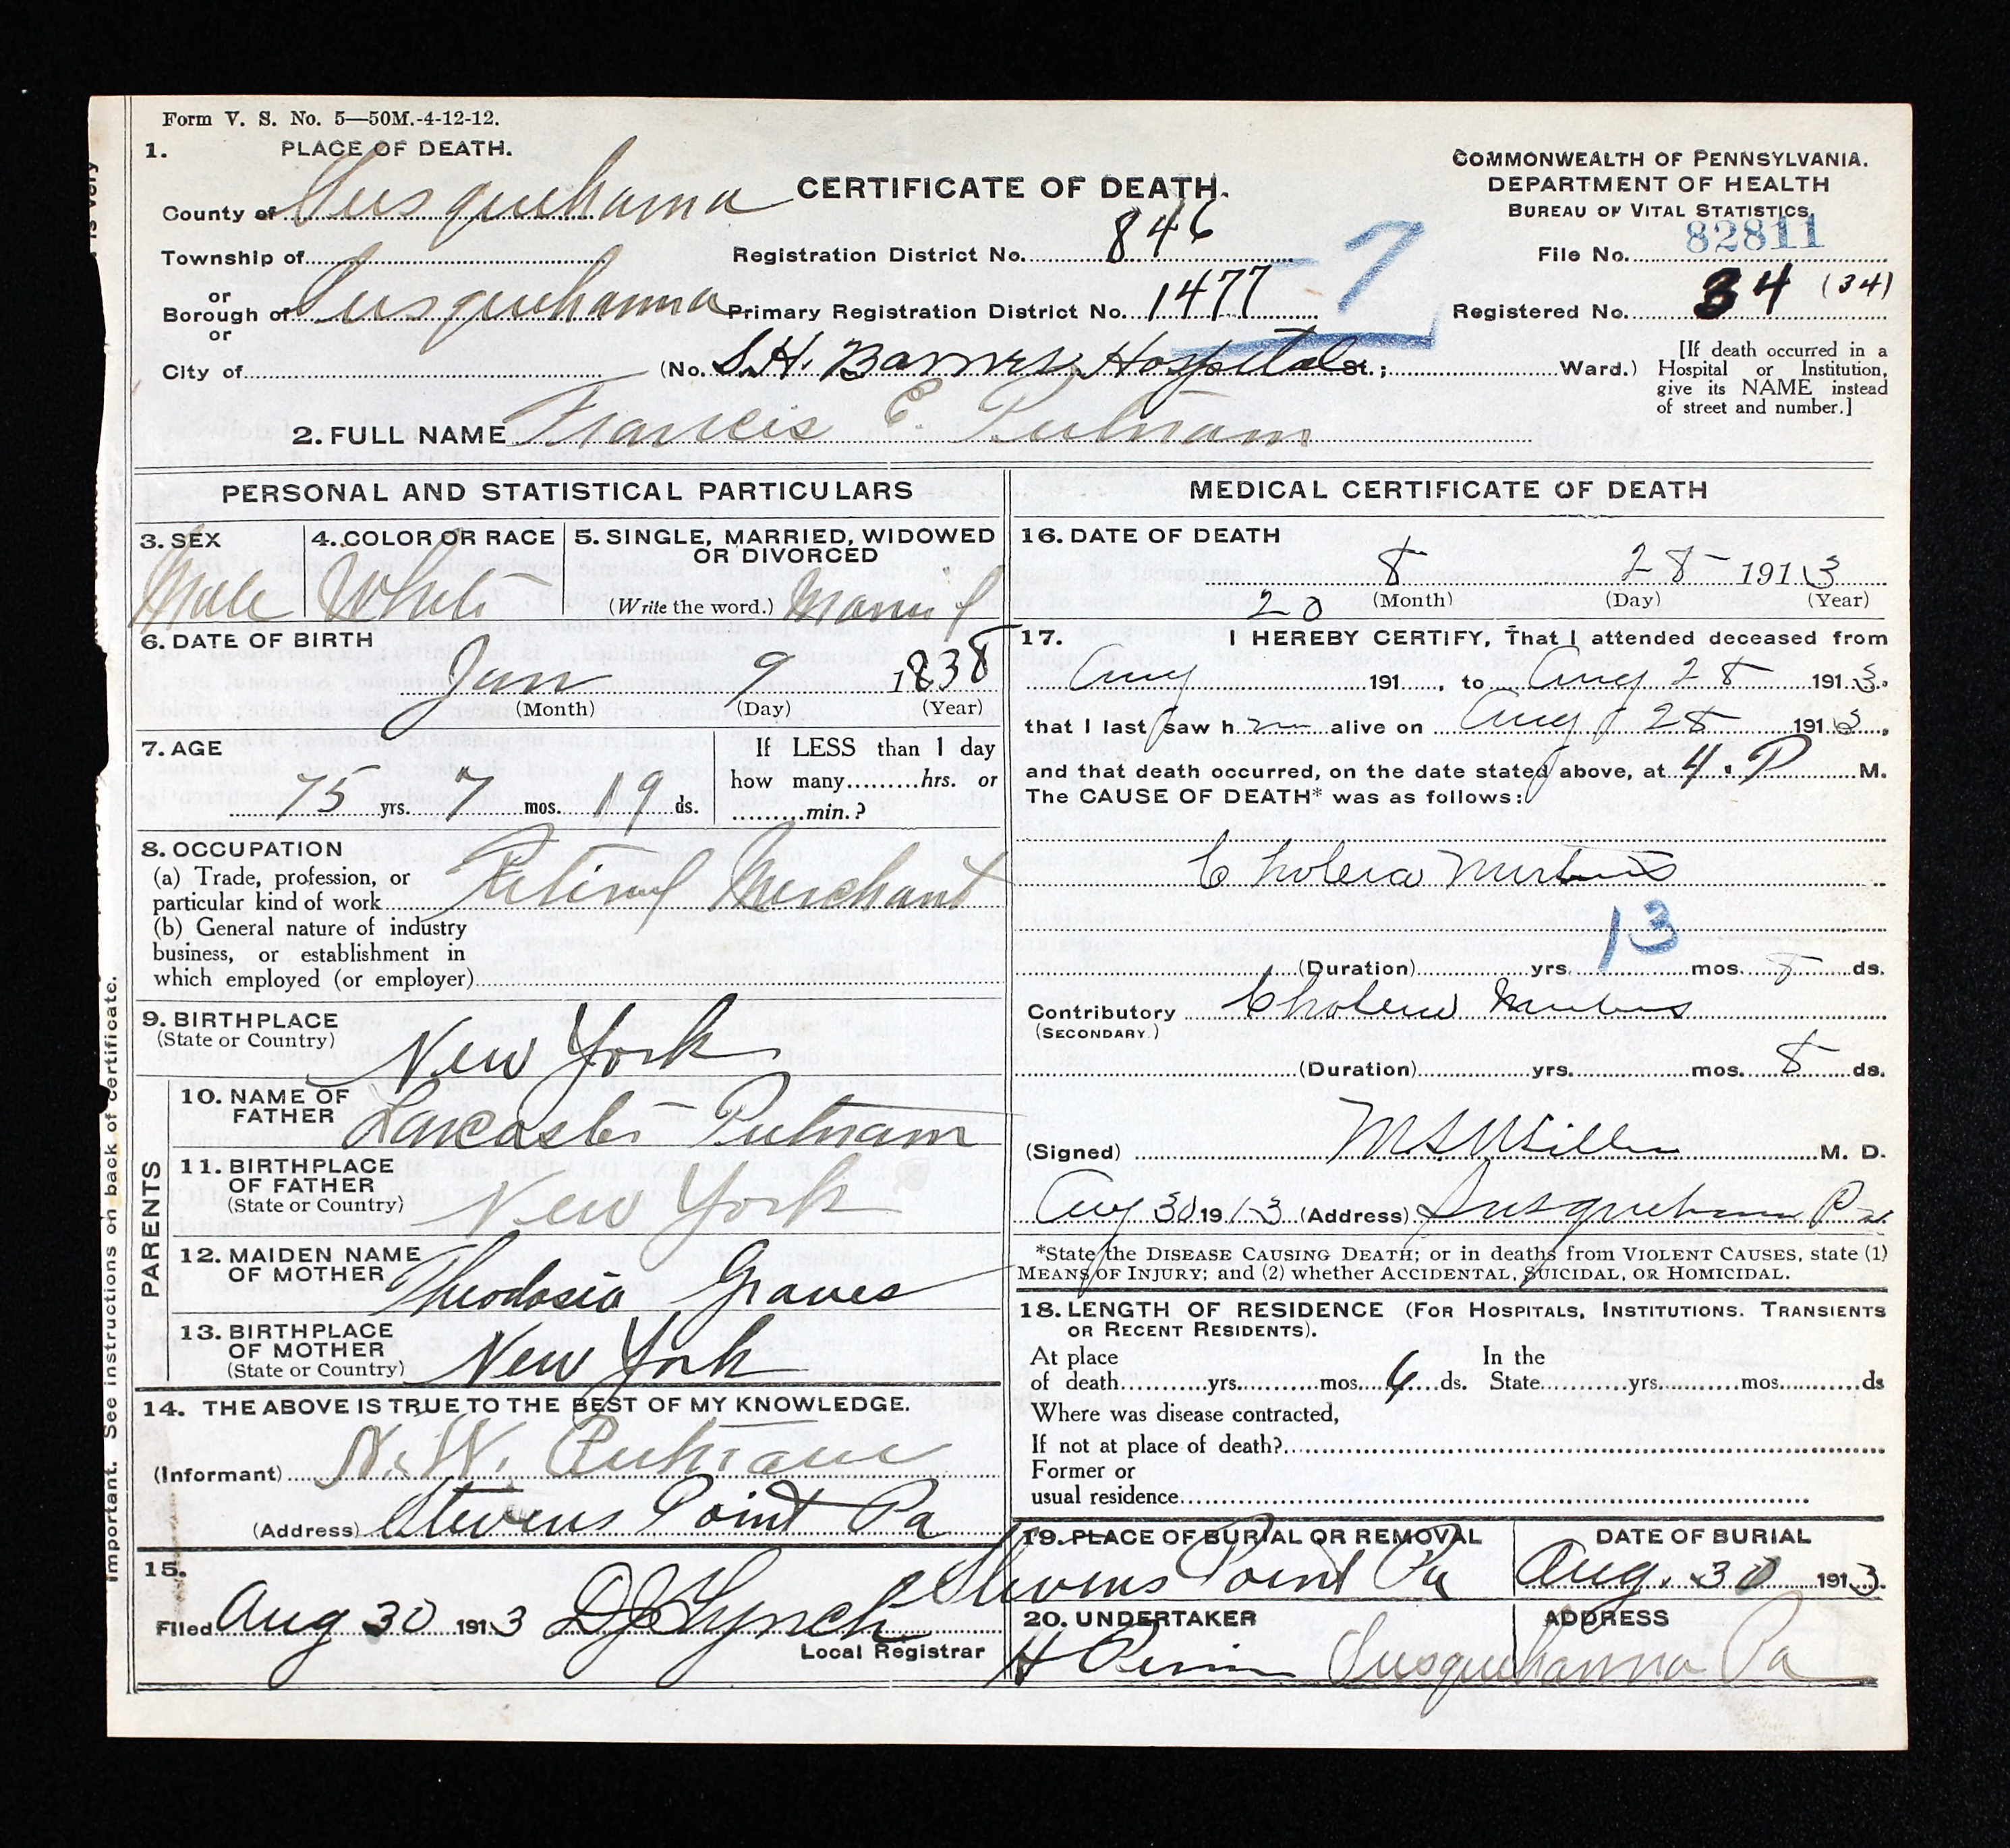 Form V. S. No. 5—50M.-4-12-12.
1. PLACE OF DEATH.
County of Susquehanna
Township of
or
Borough of Susquehanna
or
City of
CERTIFICATE OF DEATH.
Registration District No. 846
Primary Registration District No. 1477
7
(No. S.H. Barnes Hospital St.; Ward.)
COMMONWEALTH OF PENNSYLVANIA.
DEPARTMENT OF HEALTH
BUREAU OF VITAL STATISTICS.
File No. 82811
Registered No. 34 (34)
[If death occurred in a
Hospital or Institution,
give its NAME instead
of street and number.]
2. FULL NAME Francis E. Putnam
PERSONAL AND STATISTICAL PARTICULARS
3. SEX
Male
4. COLOR OR RACE
White
5. SINGLE, MARRIED, WIDOWED
OR DIVORCED
(Write the word.) Married
6. DATE OF BIRTH
Jan 9 1838
(Month) (Day) (Year)
7. AGE
75 yrs. 7 mos. 19 ds.
If LESS than 1 day
how many hrs. or
min.?
8. OCCUPATION
(a) Trade, profession, or
particular kind of work Retired Merchant
(b) General nature of industry
business, or establishment in
which employed (or employer)
9. BIRTHPLACE
(State or Country) New York
PARENTS
10. NAME OF
FATHER Lancaster Putnam
11. BIRTHPLACE
OF FATHER
(State or Country) New York
12. MAIDEN NAME
OF MOTHER Theodosia Graves
13. BIRTHPLACE
OF MOTHER
(State or Country) New York
14. THE ABOVE IS TRUE TO THE BEST OF MY KNOWLEDGE.
(Informant) N. W. Putnam
(Address) Stevens Point Pa
15.
Filed Aug 30 1913 D J Lynch
Local Registrar
MEDICAL CERTIFICATE OF DEATH
16. DATE OF DEATH
8 28 1913
(Month) (Day) (Year)
17. I HEREBY CERTIFY, That I attended deceased from
Aug 20 191 , to Aug 28 1913.
that I last saw him alive on Aug 28 1913,
and that death occurred, on the date stated above, at 4. P M.
The CAUSE OF DEATH* was as follows:
Cholera Morbus
13
(Duration) yrs. mos. 8 ds.
Contributory Cholera Morbus
(SECONDARY.)
(Duration) yrs. mos. 8 ds.
(Signed) M S Miller M. D.
Aug 30 1913 (Address) Susquehanna Pa
*State the DISEASE CAUSING DEATH; or in deaths from VIOLENT CAUSES, state (1)
MEANS OF INJURY; and (2) whether ACCIDENTAL, SUICIDAL, OR HOMICIDAL.
18. LENGTH OF RESIDENCE (FOR HOSPITALS, INSTITUTIONS. TRANSIENTS
OR RECENT RESIDENTS).
At place In the
of death yrs. mos. 6 ds. State yrs. mos. ds
Where was disease contracted,
If not at place of death?
Former or
usual residence
19. PLACE OF BURIAL OR REMOVAL
Stevens Point Pa
DATE OF BURIAL
Aug. 30 1913.
20. UNDERTAKER
H Perrin
ADDRESS
Susquehanna Pa
important. See instructions on back of certificate.
is very